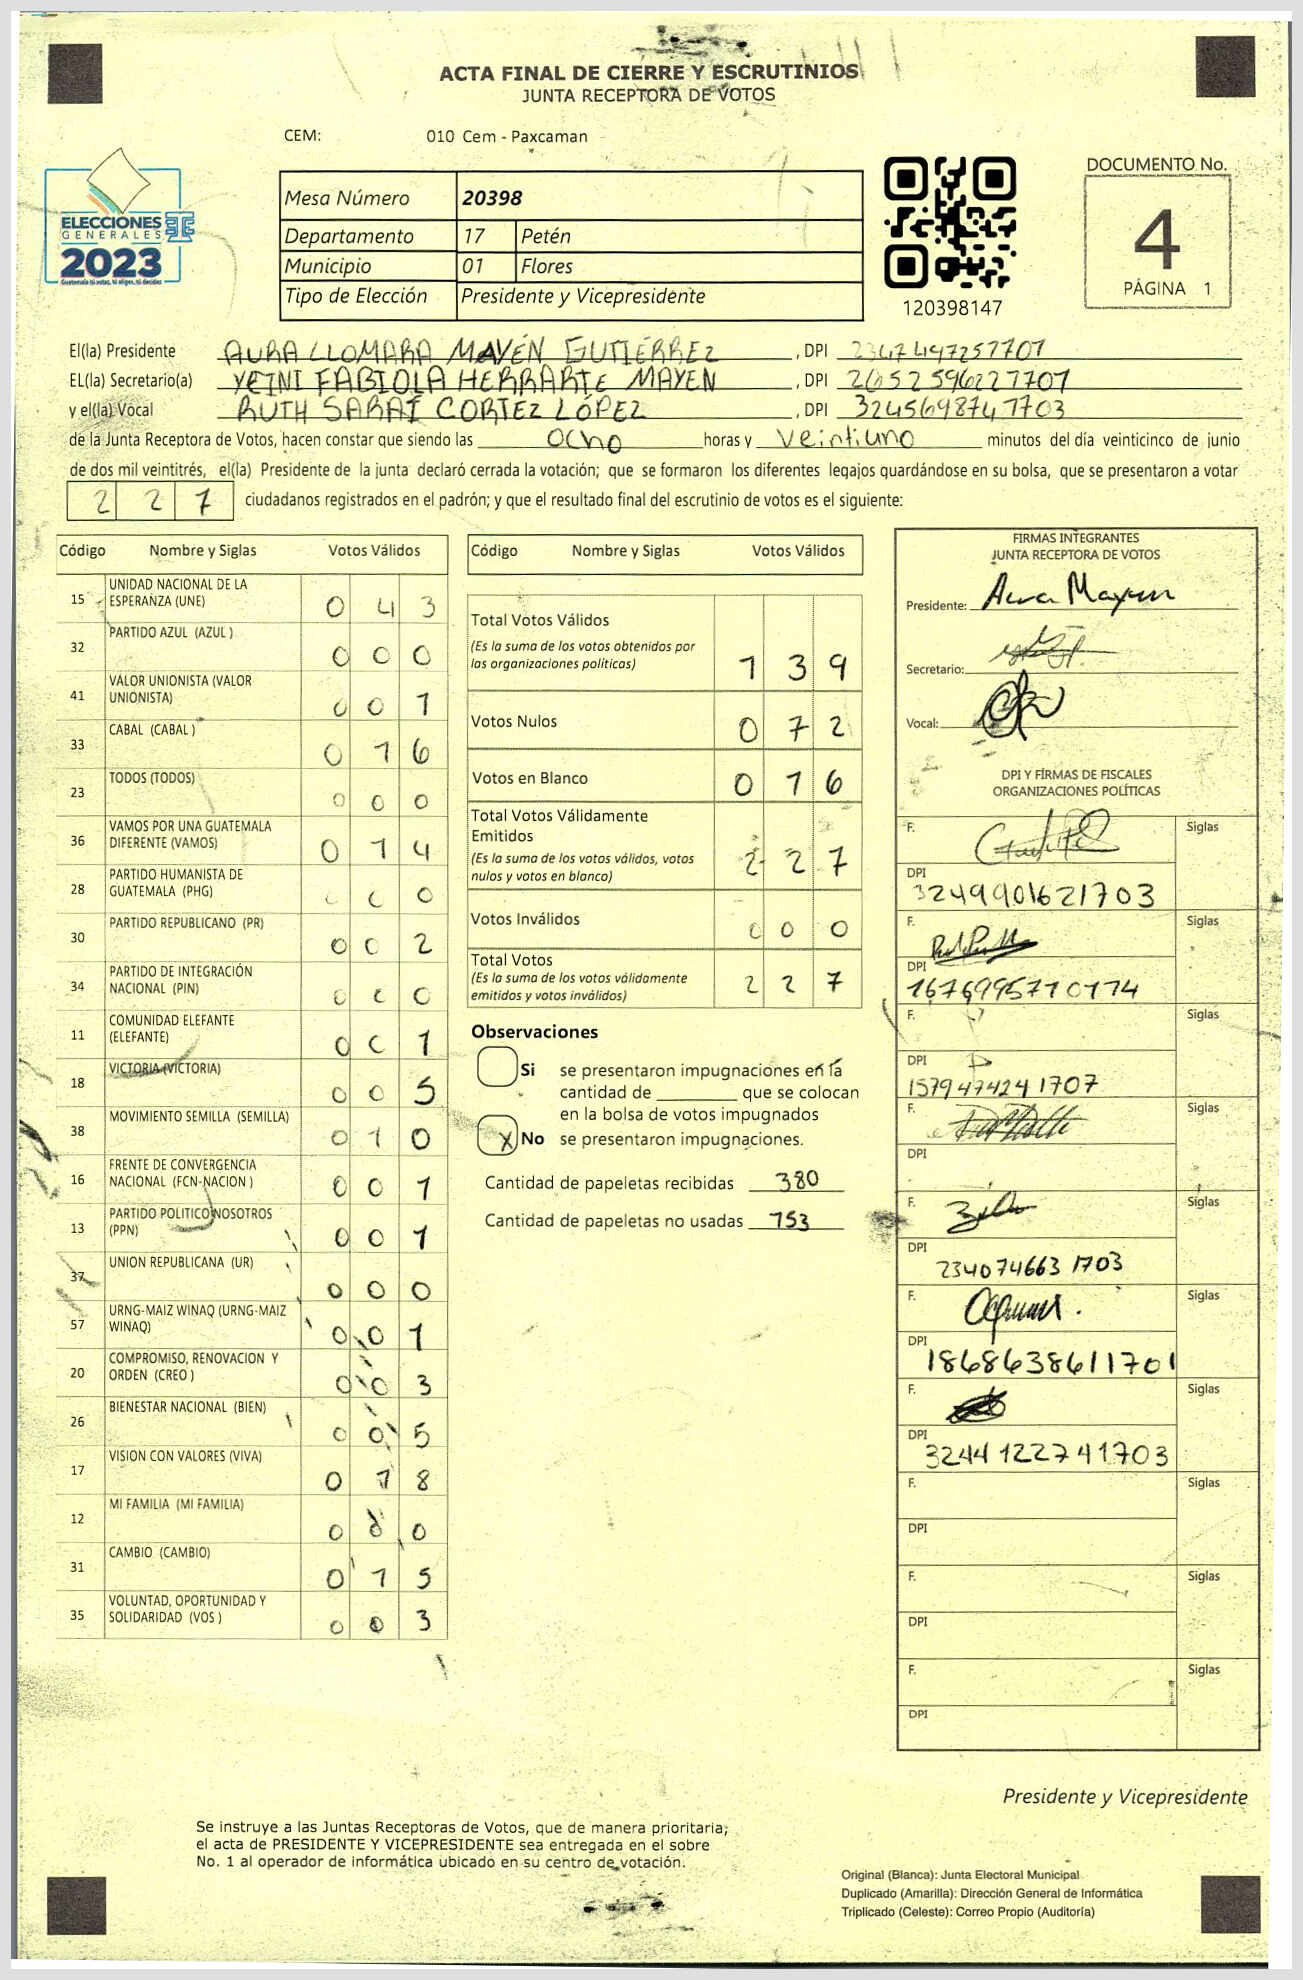 ACTA FINAL DE CIERRE Y ESCRUTINIOS
JUNTA RECEPTORA DE VOTOS
CEM: 010 Cem - Paxcaman
ELECCIONES
GENERALES
2023
Guatemala tú votas, tú eliges, tú decides
Mesa Número 20398
Departamento 17 Petén
Municipio 01 Flores
Tipo de Elección Presidente y Vicepresidente
120398147
DOCUMENTO No.
4
PÁGINA 1
El(la) Presidente AURA LLOMARA MAYÉN GUTIÉRREZ, DPI 2347497257707
EL(la) Secretario(a) YEINI FABIOLA HERRARTE MAYEN, DPI 2652596227707
y el(la) Vocal RUTH SARAÍ CORTEZ LÓPEZ, DPI 3245698747703
de la Junta Receptora de Votos, hacen constar que siendo las ocho horas y veintiuno minutos del día veinticinco de junio
de dos mil veintitrés, el(la) Presidente de la junta declaró cerrada la votación; que se formaron los diferentes legajos quardándose en su bolsa, que se presentaron a votar
227 ciudadanos registrados en el padrón; y que el resultado final del escrutinio de votos es el siguiente:
Código Nombre y Siglas Votos Válidos
15 UNIDAD NACIONAL DE LA ESPERANZA (UNE) 0 4 3
32 PARTIDO AZUL (AZUL ) 0 0 0
41 VALOR UNIONISTA (VALOR UNIONISTA) 0 0 1
33 CABAL (CABAL ) 0 1 6
23 TODOS (TODOS) 0 0 0
36 VAMOS POR UNA GUATEMALA DIFERENTE (VAMOS) 0 1 4
28 PARTIDO HUMANISTA DE GUATEMALA (PHG) 0 0 0
30 PARTIDO REPUBLICANO (PR) 0 0 2
34 PARTIDO DE INTEGRACIÓN NACIONAL (PIN) 0 0 0
11 COMUNIDAD ELEFANTE (ELEFANTE) 0 0 1
18 VICTORIA (VICTORIA) 0 0 5
38 MOVIMIENTO SEMILLA (SEMILLA) 0 1 0
16 FRENTE DE CONVERGENCIA NACIONAL (FCN-NACION ) 0 0 1
13 PARTIDO POLITICO NOSOTROS (PPN) 0 0 1
37 UNION REPUBLICANA (UR) 0 0 0
57 URNG-MAIZ WINAQ (URNG-MAIZ WINAQ) 0 0 1
20 COMPROMISO, RENOVACION Y ORDEN (CREO ) 0 0 3
26 BIENESTAR NACIONAL (BIEN) 0 0 5
17 VISION CON VALORES (VIVA) 0 1 8
12 MI FAMILIA (MI FAMILIA) 0 0 0
31 CAMBIO (CAMBIO) 0 1 5
35 VOLUNTAD, OPORTUNIDAD Y SOLIDARIDAD (VOS ) 0 0 3
Código Nombre y Siglas Votos Válidos
Total Votos Válidos
(Es la suma de los votos obtenidos por
las organizaciones políticas) 1 3 9
Votos Nulos 0 7 2
Votos en Blanco 0 1 6
Total Votos Válidamente
Emitidos
(Es la suma de los votos válidos, votos
nulos y votos en blanco) 2 2 7
Votos Inválidos 0 0 0
Total Votos
(Es la suma de los votos válidamente
emitidos y votos inválidos) 2 2 7
Observaciones
Si se presentaron impugnaciones en la
cantidad de ________ que se colocan
en la bolsa de votos impugnados
X No se presentaron impugnaciones.
Cantidad de papeletas recibidas 380
Cantidad de papeletas no usadas 153
FIRMAS INTEGRANTES
JUNTA RECEPTORA DE VOTOS
Presidente: Aura Mayen
Secretario:
Vocal:
DPI Y FIRMAS DE FISCALES
ORGANIZACIONES POLÍTICAS
F. Siglas
DPI 3249901621703
F. Siglas
DPI 1676995710174
F. Siglas
DPI 1579474241707
F. Siglas
DPI
F. Siglas
DPI 2340746631703
F. Siglas
DPI 1868638611701
F. Siglas
DPI 3244122741703
F. Siglas
DPI
F. Siglas
DPI
F. Siglas
DPI
Presidente y Vicepresidente
Se instruye a las Juntas Receptoras de Votos, que de manera prioritaria,
el acta de PRESIDENTE Y VICEPRESIDENTE sea entregada en el sobre
No. 1 al operador de informática ubicado en su centro de votación.
Original (Blanca): Junta Electoral Municipal
Duplicado (Amarilla): Dirección General de Informática
Triplicado (Celeste): Correo Propio (Auditoría)